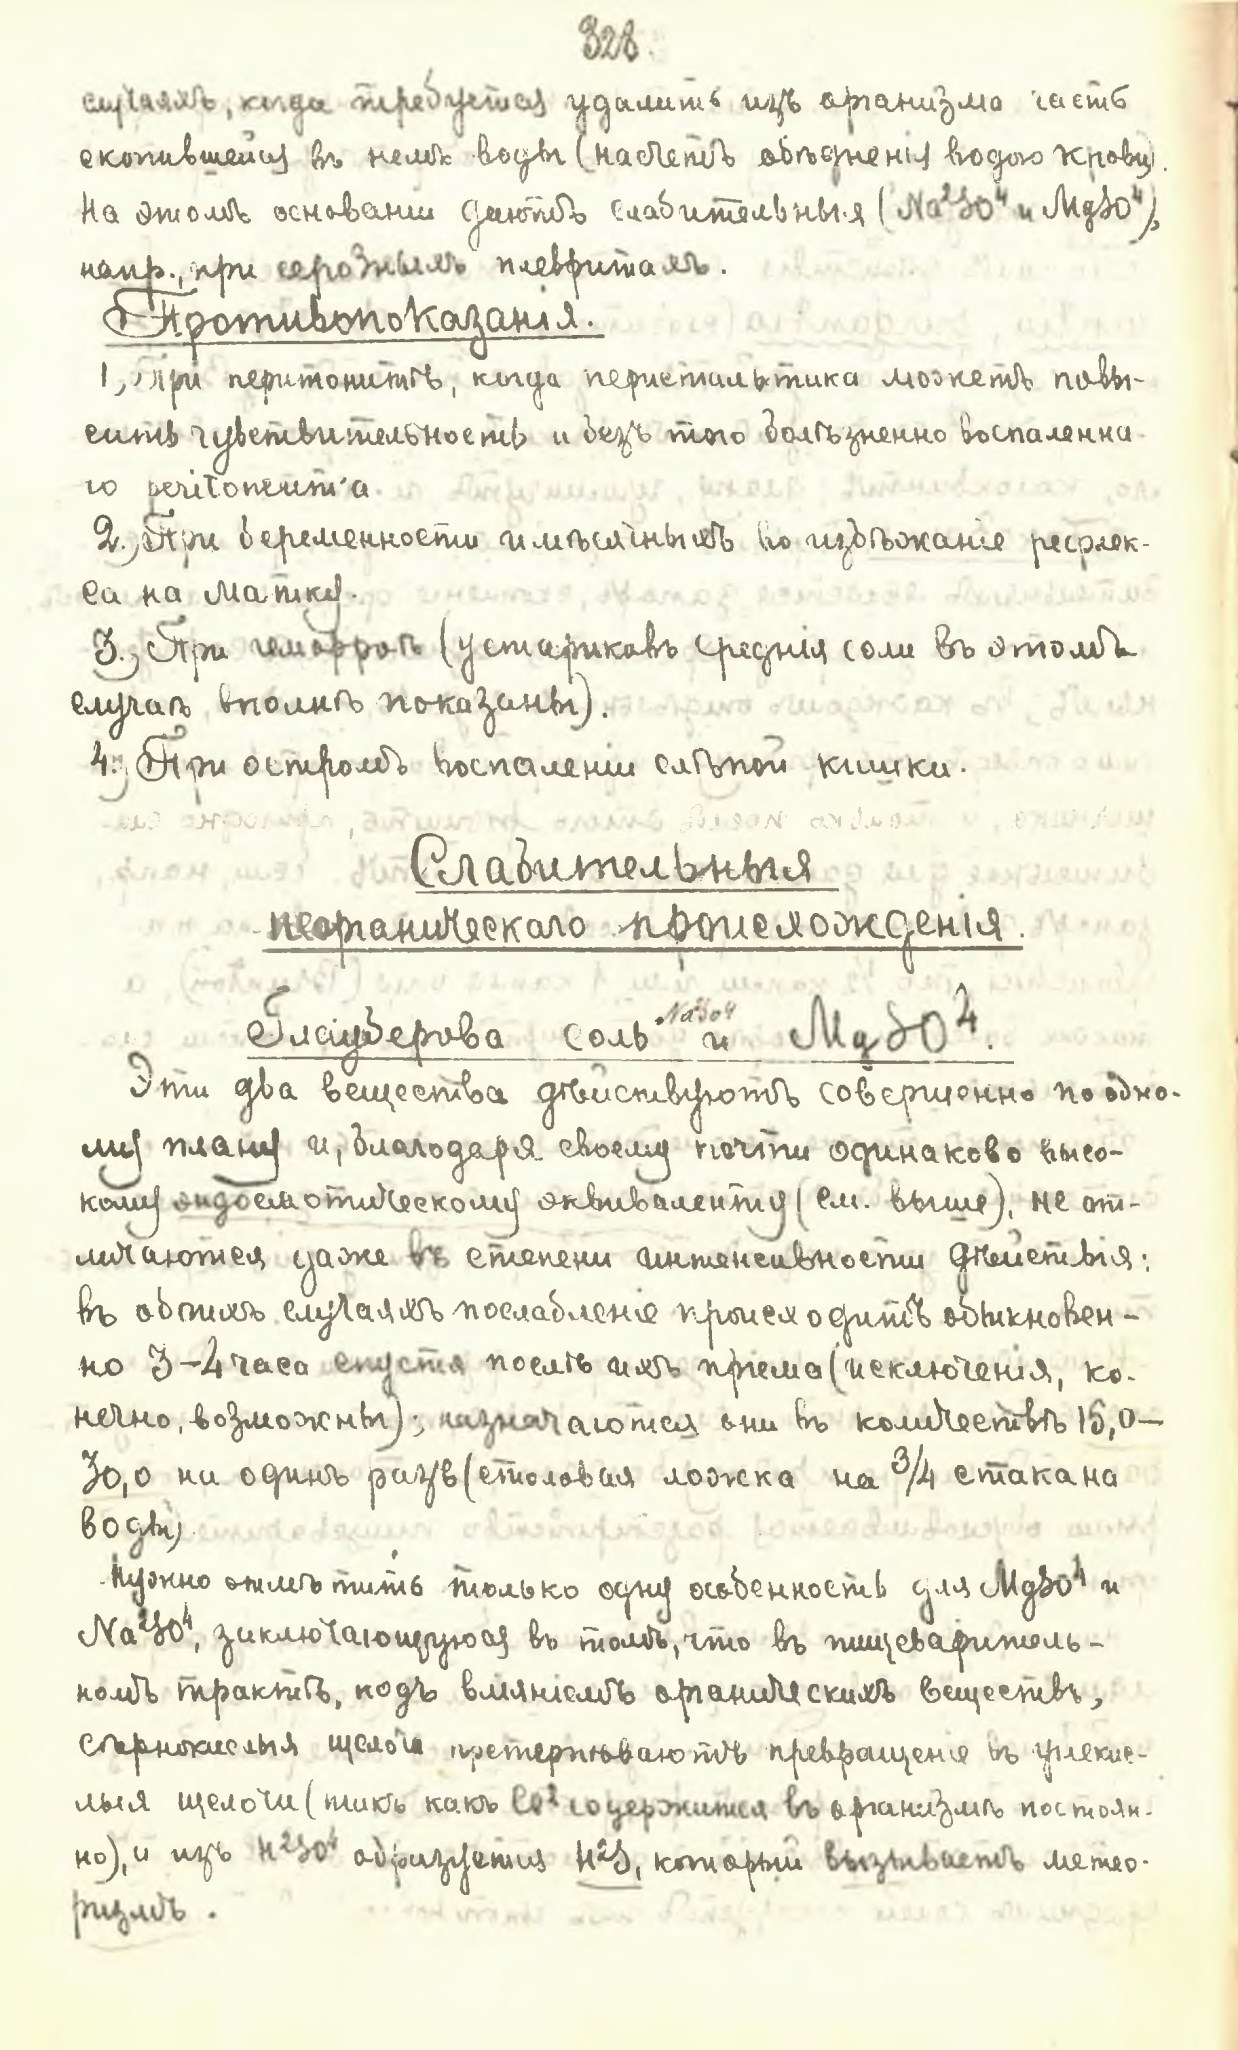 328.
случаяхъ, когда требуется удалить изъ организма часть
скопившейся въ немъ воды (насчетъ объѣдненія водою крови).
На этомъ основаніи даютъ слабительныя (Na²SO⁴ и MgSO⁴),
напр., при серозныхъ плевритахъ.
Противопоказанія.
1, При перитонитѣ, когда перистальтика можетъ повы-
сить чувствительность и безъ того болѣзненно воспаленна-
го peritoneum'a
2., При беременности и мѣсячныхъ во избѣжаніе рефлек-
са на матку.
3., При геморроѣ (у стариковъ среднія соли въ этомъ
случаѣ вполнѣ показаны).
4., При остромъ воспаленіи слѣпой кишки.
Слабительныя
неорганическаго происхожденія.
Глауберова соль Na²SO⁴ и MgSO⁴.
Эти два вещества дѣйствуютъ совершенно по одно-
му плану и, благодаря своему почти одинаково высо-
кому эндосмотическому эквиваленту (см. выше), не от-
личаются даже въ степени интенсивности дѣйствія:
въ обѣихъ случаяхъ послабленіе происходитъ обыкновен-
но 3-4 часа спустя послѣ ихъ пріема (исключенія, ко-
нечно, возможны); назначаются они въ количествѣ 15,0—
30,0 на одинъ разъ (столовая ложка на 3/4 стакана
воды)
Нужно отмѣтить только одну особенность для MgSO⁴ и
Na²SO⁴, заключающуюся въ томъ, что въ пищеваритель-
номъ трактѣ, подъ вліяніемъ органическихъ веществъ,
сѣрнокислыя щелочи претерпѣваютъ превращеніе въ углекис-
лыя щелочи (такъ какъ CO² содержится въ организмѣ постоян-
но), и изъ H²SO⁴ образуется H²S, который вызываетъ метео-
ризмъ.